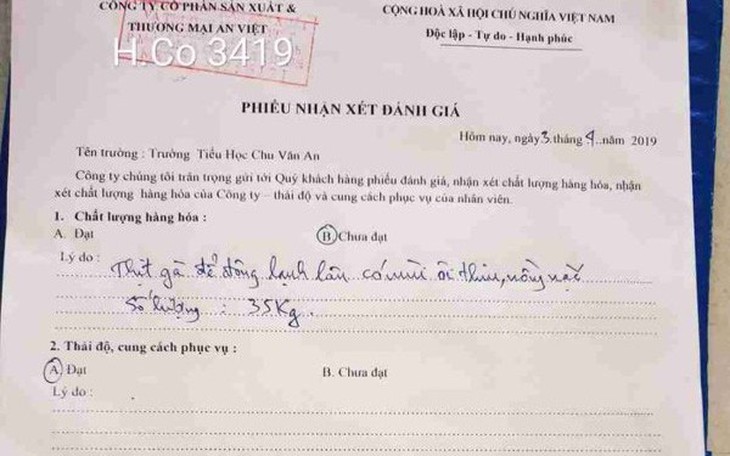 CÔNG TY CỔ PHẦN SẢN XUẤT &
THƯƠNG MẠI AN VIỆT
H.Co 3419
CỘNG HOÀ XÃ HỘI CHỦ NGHĨA VIỆT NAM
Độc lập - Tự do - Hạnh phúc
PHIẾU NHẬN XÉT ĐÁNH GIÁ
Hôm nay, ngày 3. tháng 4..năm 2019
Tên trường : Trường Tiểu Học Chu Văn An
Công ty chúng tôi trân trọng gửi tới Quý khách hàng phiếu đánh giá, nhận xét chất lượng hàng hóa, nhận
xét chất lượng hàng hóa của Công ty – thái độ và cung cách phục vụ của nhân viên.
1. Chất lượng hàng hóa :
A. Đạt
B. Chưa đạt
Lý do : Thịt gà để đông lạnh lâu có mùi ôi thiu, nồng nặc
Số lượng : 35Kg.
2. Thái độ, cung cách phục vụ :
A. Đạt
B. Chưa đạt
Lý do :